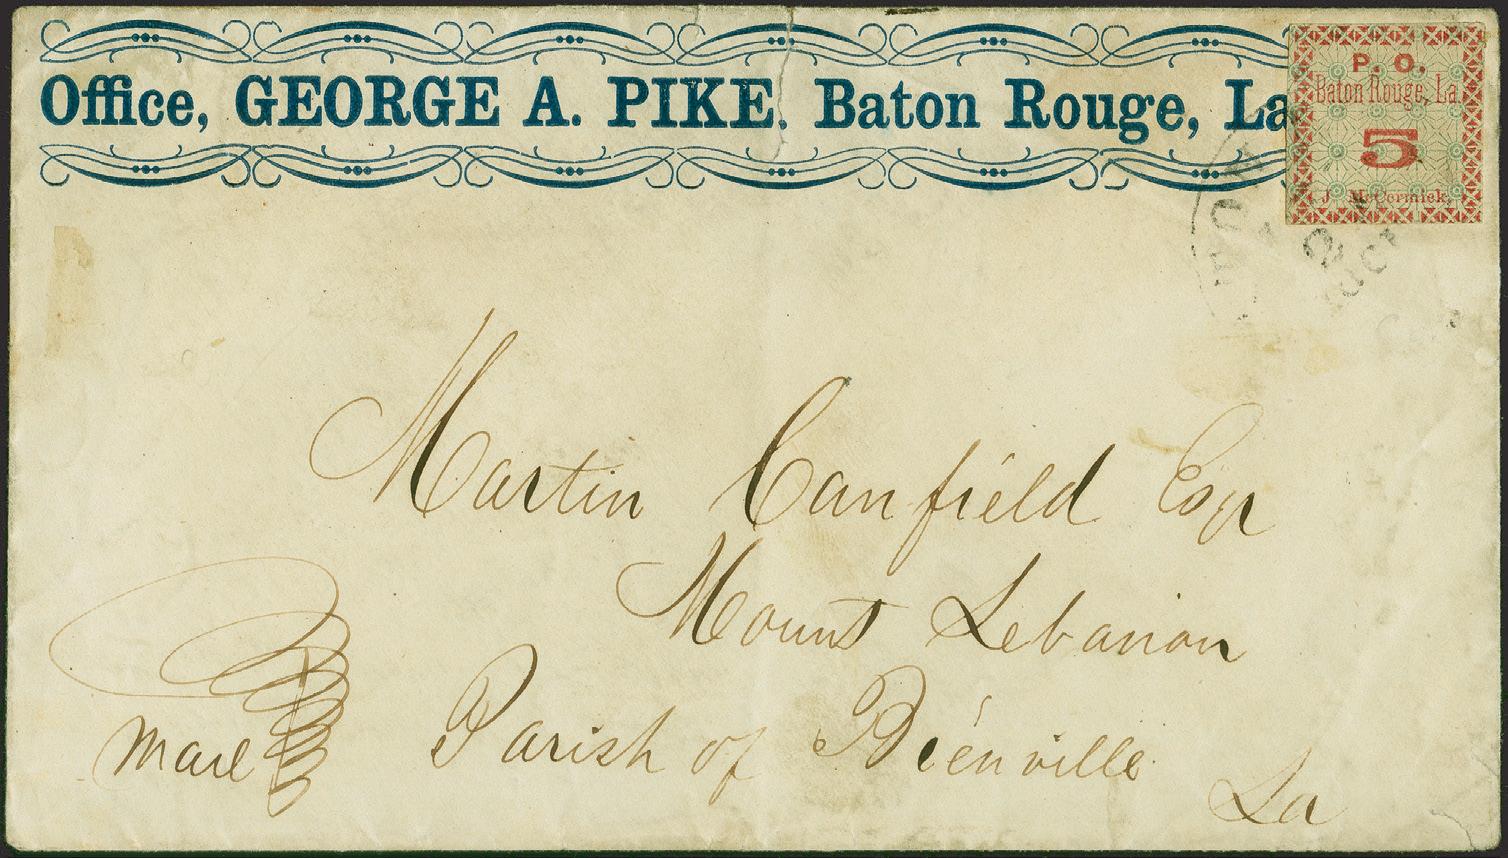 Office, GEORGE A. PIKE. Baton Rouge, La
P. O.
Baton Rouge, La.
5
J. McCormick.
Martin Canfield Esqr
Mount Lebanon
Parish of Bienville
La
Mail